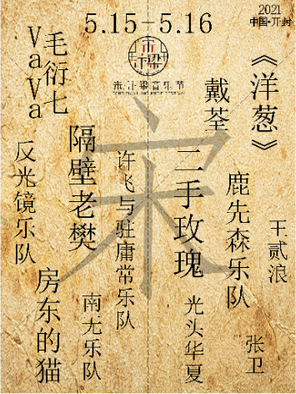 5.15-5.16
2021
中国·开封
汴梁
宋
《洋葱》
戴荃
毛衍七
VaVa
二手玫瑰
隔壁老樊
许飞与驻庸常乐队
鹿先森乐队
反光镜乐队
王贰浪
房东的猫
南无乐队
光头华夏
张卫